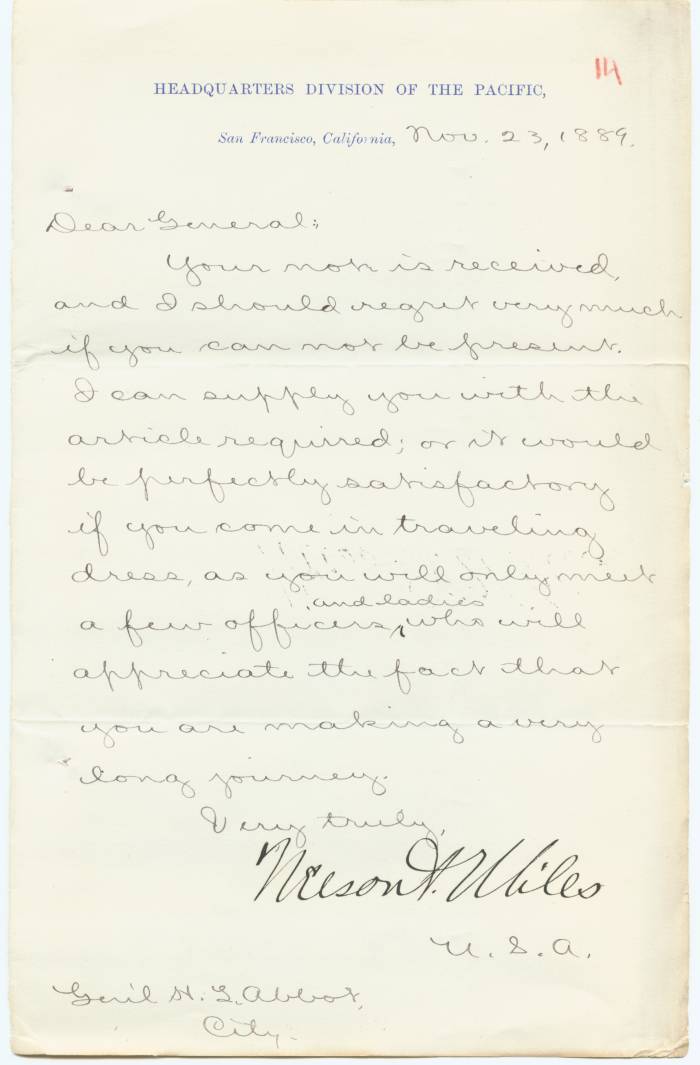 14
HEADQUARTERS DIVISION OF THE PACIFIC,
San Francisco, California, Nov. 23, 1889.
Dear General:
Your note is received,
and I should regret very much
if you can not be present.
I can supply you with the
article required; or it would
be perfectly satisfactory
if you come in traveling
dress, as you will only meet
and ladies
a few officers, who will
appreciate the fact that
you are making a very
long journey.
Very truly,
Nelson A. Miles
U. S. A.
Gen'l H. L. Abbot,
City.